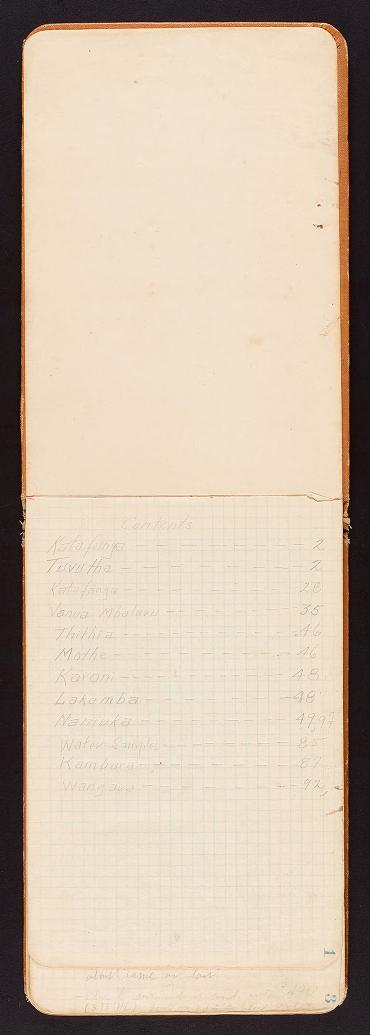 Contents
Katafanga - - - - - - - - 2
Tuvutha - - - - - - - - 2
Katafanga - - - - - - - - 28
Vanua Mbalavu - - - - - - 35
Thithia - - - - - - - - 46
Mothe - - - - - - - - 46
Karoni - - - - - - - - 48
Lakemba - - - - - - - - 48
Namuka - - - - - - - - 49, 97
Water Samples - - - - - - 85
Kambara - - - - - - - - 87
Wangava - - - - - - - - 92
1
about same as last
3